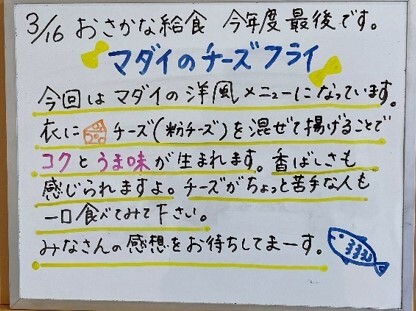 3/16 おさかな給食 今年度最後です。
マダイのチーズフライ
今回はマダイの洋風メニューになっています。
衣にチーズ(粉チーズ)を混ぜて揚げることで
コクとうま味が生まれます。香ばしさも
感じられますよ。チーズがちょっと苦手な人も
一口食べてみて下さい。
みなさんの感想をお待ちしてまーす。